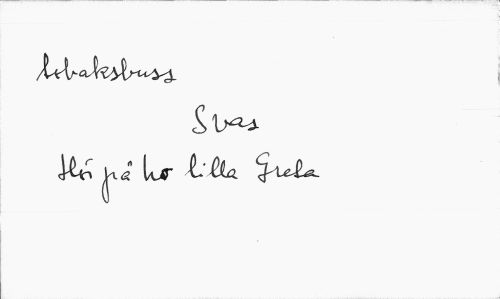 tobaksbuss
Svas
Hör på ho lilla Greta